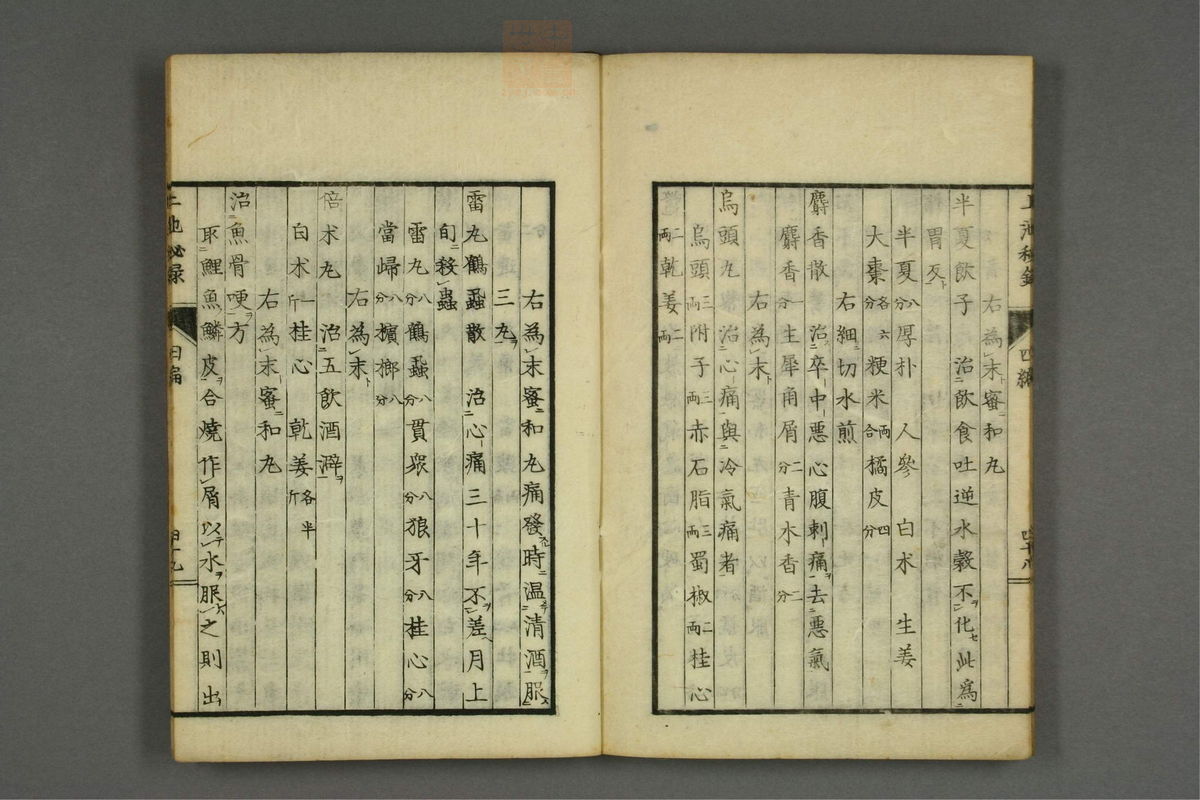 右為末蜜和丸
半夏飲子　治飲食吐逆水穀不化此為
胃反
半夏八分厚朴　人參　白朮　生姜
大棗各六分粳米兩合橘皮四分
右細切水煎
麝香散　治卒中惡心腹刺痛去惡氣
麝香一分生犀角屑二分青木香二分
右為末
烏頭丸　治心痛與冷氣痛者
烏頭三兩附子三兩赤石脂三兩蜀椒二兩桂心
二兩乾姜二兩
上池秘錄　四編　四十八
右為末蜜和丸痛發時温清酒服
三丸
雷丸鶴蝨散　治心痛三十年不差月上
旬殺蟲
雷丸八分鶴蝨八分貫衆八分狼牙八分桂心八分
當歸八分檳榔八分
右為末
倍朮丸　治五飲酒澼
白朮一斤桂心　乾姜各半斤
右為末蜜和丸
治魚骨哽方
取鯉魚鱗皮合燒作屑以水服之則出
上池秘録　四編　四十九